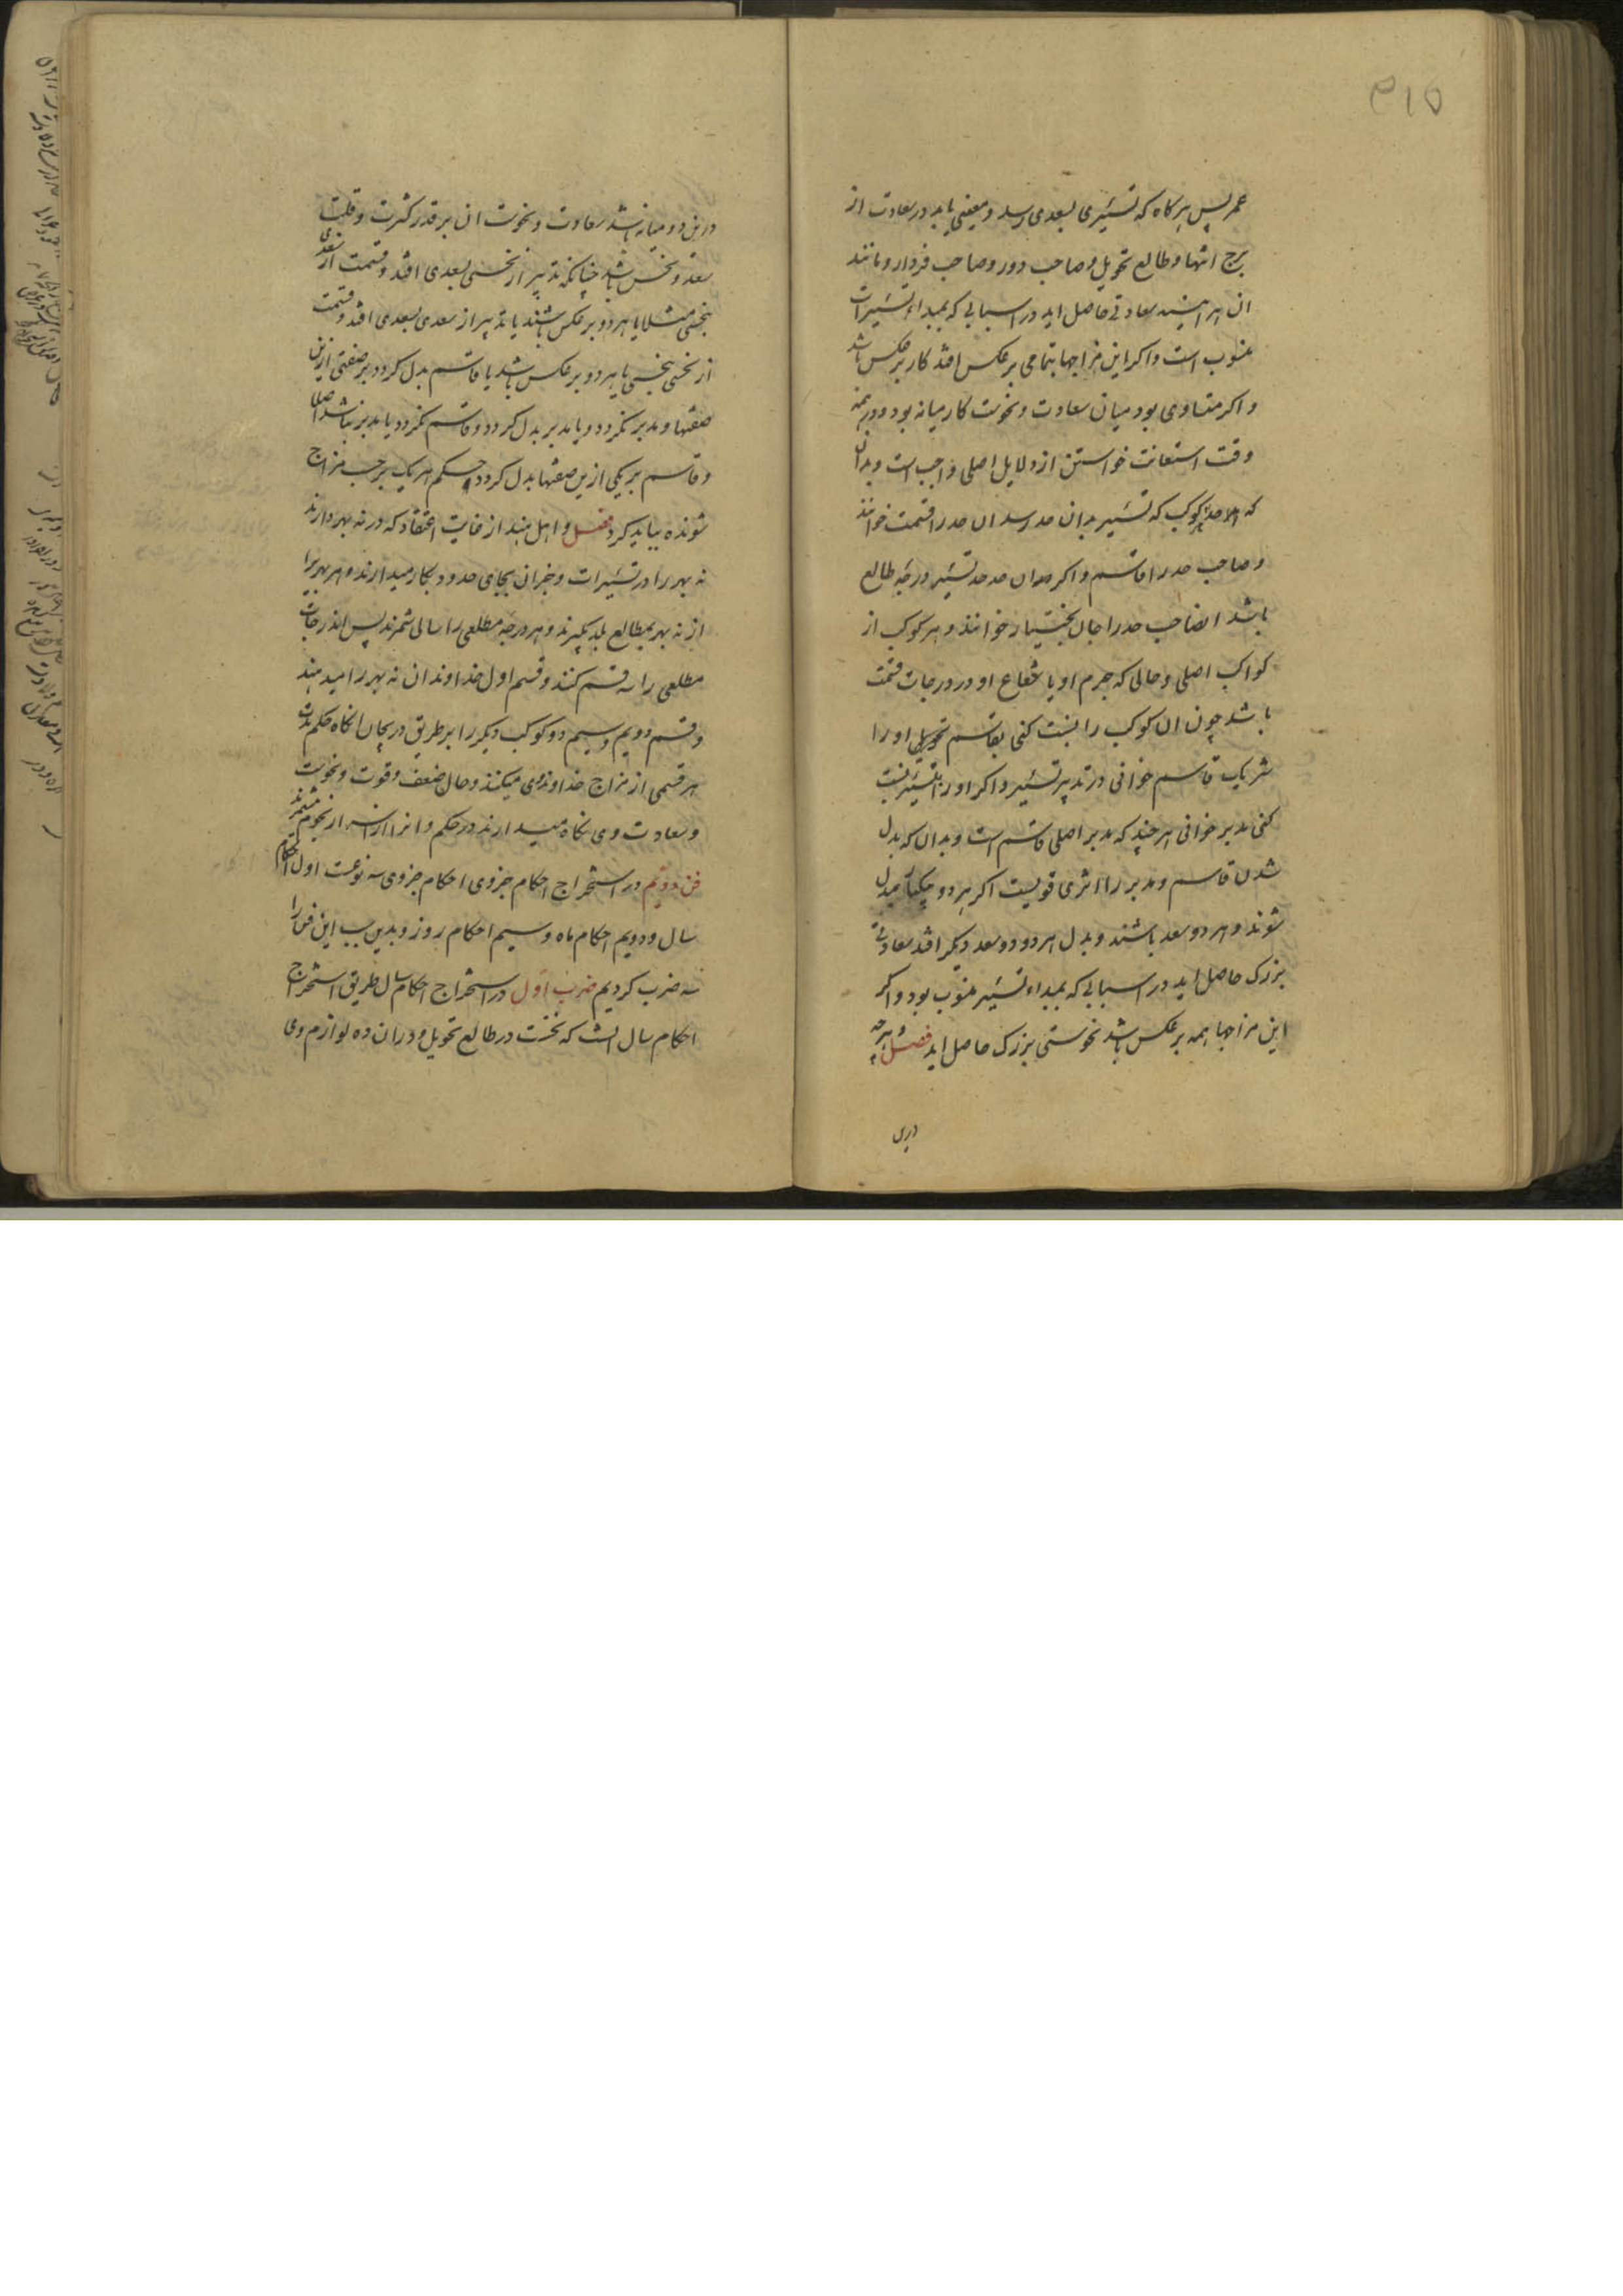 ۵۱۳
عمر پس هر کاه که تسییری بسعدی رسد و معینی یابد در سعادت از
برج انتها و طالع تحویل و صاحب دور و صاحب فردار و مانند
ان هر اینه سعادتی حاصل اید در اسبابی که بمبداء تسییرات
منسوب است و اکر این مزاجها بتمامی بر عکس افتد کار بر عکس باشد
و اکر متساوی بود میان سعادت و نحوست کار میانه بود و در همه
وقت استعانت خواستن از دلایل اصلی واجبست و بدان
که هر حد کوکب که تسییر بدان حد رسد ان حد را قسمت خوانند
و صاحب حد را قاسم و اکر حد ان حد حد تسییر درجه طالع
باشد انصاحب حد را جان بختیار خوانند و هر کوکب از
کواکب اصلی و حالی که جرم او یا شعاع او در درجات قسمت
باشد چون ان کوکب را نسبت کنی بقاسم تحویلی او را
شریک قاسم خوانی در تدبیر تسییر و اکر او را بتسییر نسبت
کنی مدبر خوانی هر چند که مدبر اصلی قاسم است و بدان که بدل
شدن قاسم و مدبر را اثری قویست اکر هر دو بیکبار مبدل
شوند و هر دو سعد باشند و بدل هر دو دو سعد دیکر افتد سعادتی
بزرک حاصل اید در اسبابی که بمبداء تسییر منسوب بود و اکر
این مزاجها همه بر عکس باشد نحوستی بزرک حاصل اید فصل هر چه
درین
درین دو میانه باشد سعادت و نحوست ان بر قدر کثرت و قلت
سعد و نحس باشد چنانکه تدبیر از نحسی بسعدی افتد و قسمت از سعدی
بنحسی مثلا یا هر دو بر عکس باشند یا تدبیر از سعدی بسعدی افتد و قسمت
از نحسی بنحسی یا هر دو بر عکس باشد یا قاسم بدل کردد بر صفتی ازین
صفتها و مدبر نکردد و یا مدبر بدل کردد و قاسم نکردد یا مدبر نباشد اصلا
و قاسم بر یکی ازین صفتها بدل کردد حکم هر یک بر حسب مزاج
شونده بباید کرد فصل و اهل هند از غایت اعتقاد که در نه بهر دارند
نه بهر را در تسییرات و جز ان بجای حدود بکار میدارند و هر بهر را
از نه بهر بمطالع بلد بکیرند و هر درجه مطلعی را سالی شمرند پس اندرجات
مطلعی را سه قسم کنند و قسم اول خداوند ان نه بهر را میدهند
و قسم دویم و سیم دو کوکب دیکر را بر طریق دریجان انکاه حکم مدت
هر قسمی از مزاج خداوند وی میکنند و حال ضعف و قوت و نحوست
و سعادت وی نکاه میدارند در حکم و انرا از اسرار نجوم شمرند
فن دویم در استخراج احکام جزوی احکام جزوی سه نوعست اول احکام
سال و دویم احکام ماه و سیم احکام روز و بدین سبب این فن را
سه ضرب کردیم ضرب اول در استخراج احکام سال طریق استخراج
احکام سال انست که نخست در طالع تحویل و در ان ده لوازم وی